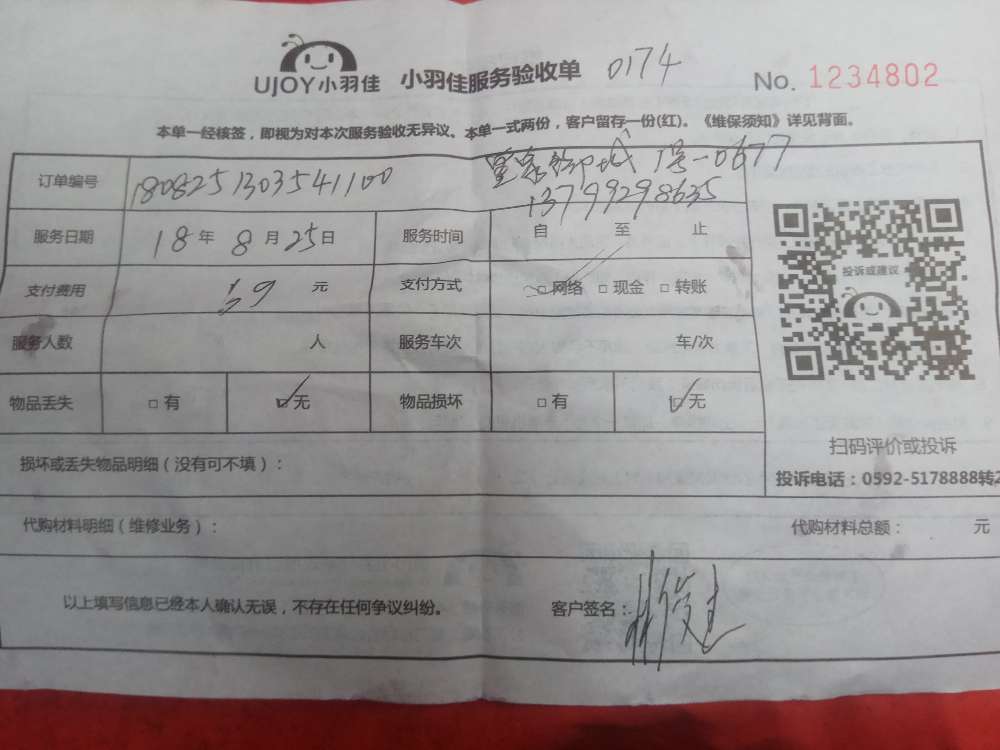 UJOY小羽佳 小羽佳服务验收单 0174 No. 1234802
本单一经核签，即视为对本次服务验收无异议。本单一式两份，客户留存一份(红)。《维保须知》详见背面。
订单编号 1808251303541100 1号-0677
13799298635
服务日期 18 年 8 月 25 日 服务时间 自 至 止
支付费用 39 元 支付方式 □网络 □现金 □转账
投诉或建议
服务人数 人 服务车次 车/次
物品丢失 □有 ☑无 物品损坏 □有 ☑无
扫码评价或投诉
损坏或丢失物品明细（没有可不填）：
投诉电话：0592-5178888转2
代购材料明细（维修业务）： 代购材料总额： 元
以上填写信息已经本人确认无误，不存在任何争议纠纷。 客户签名：